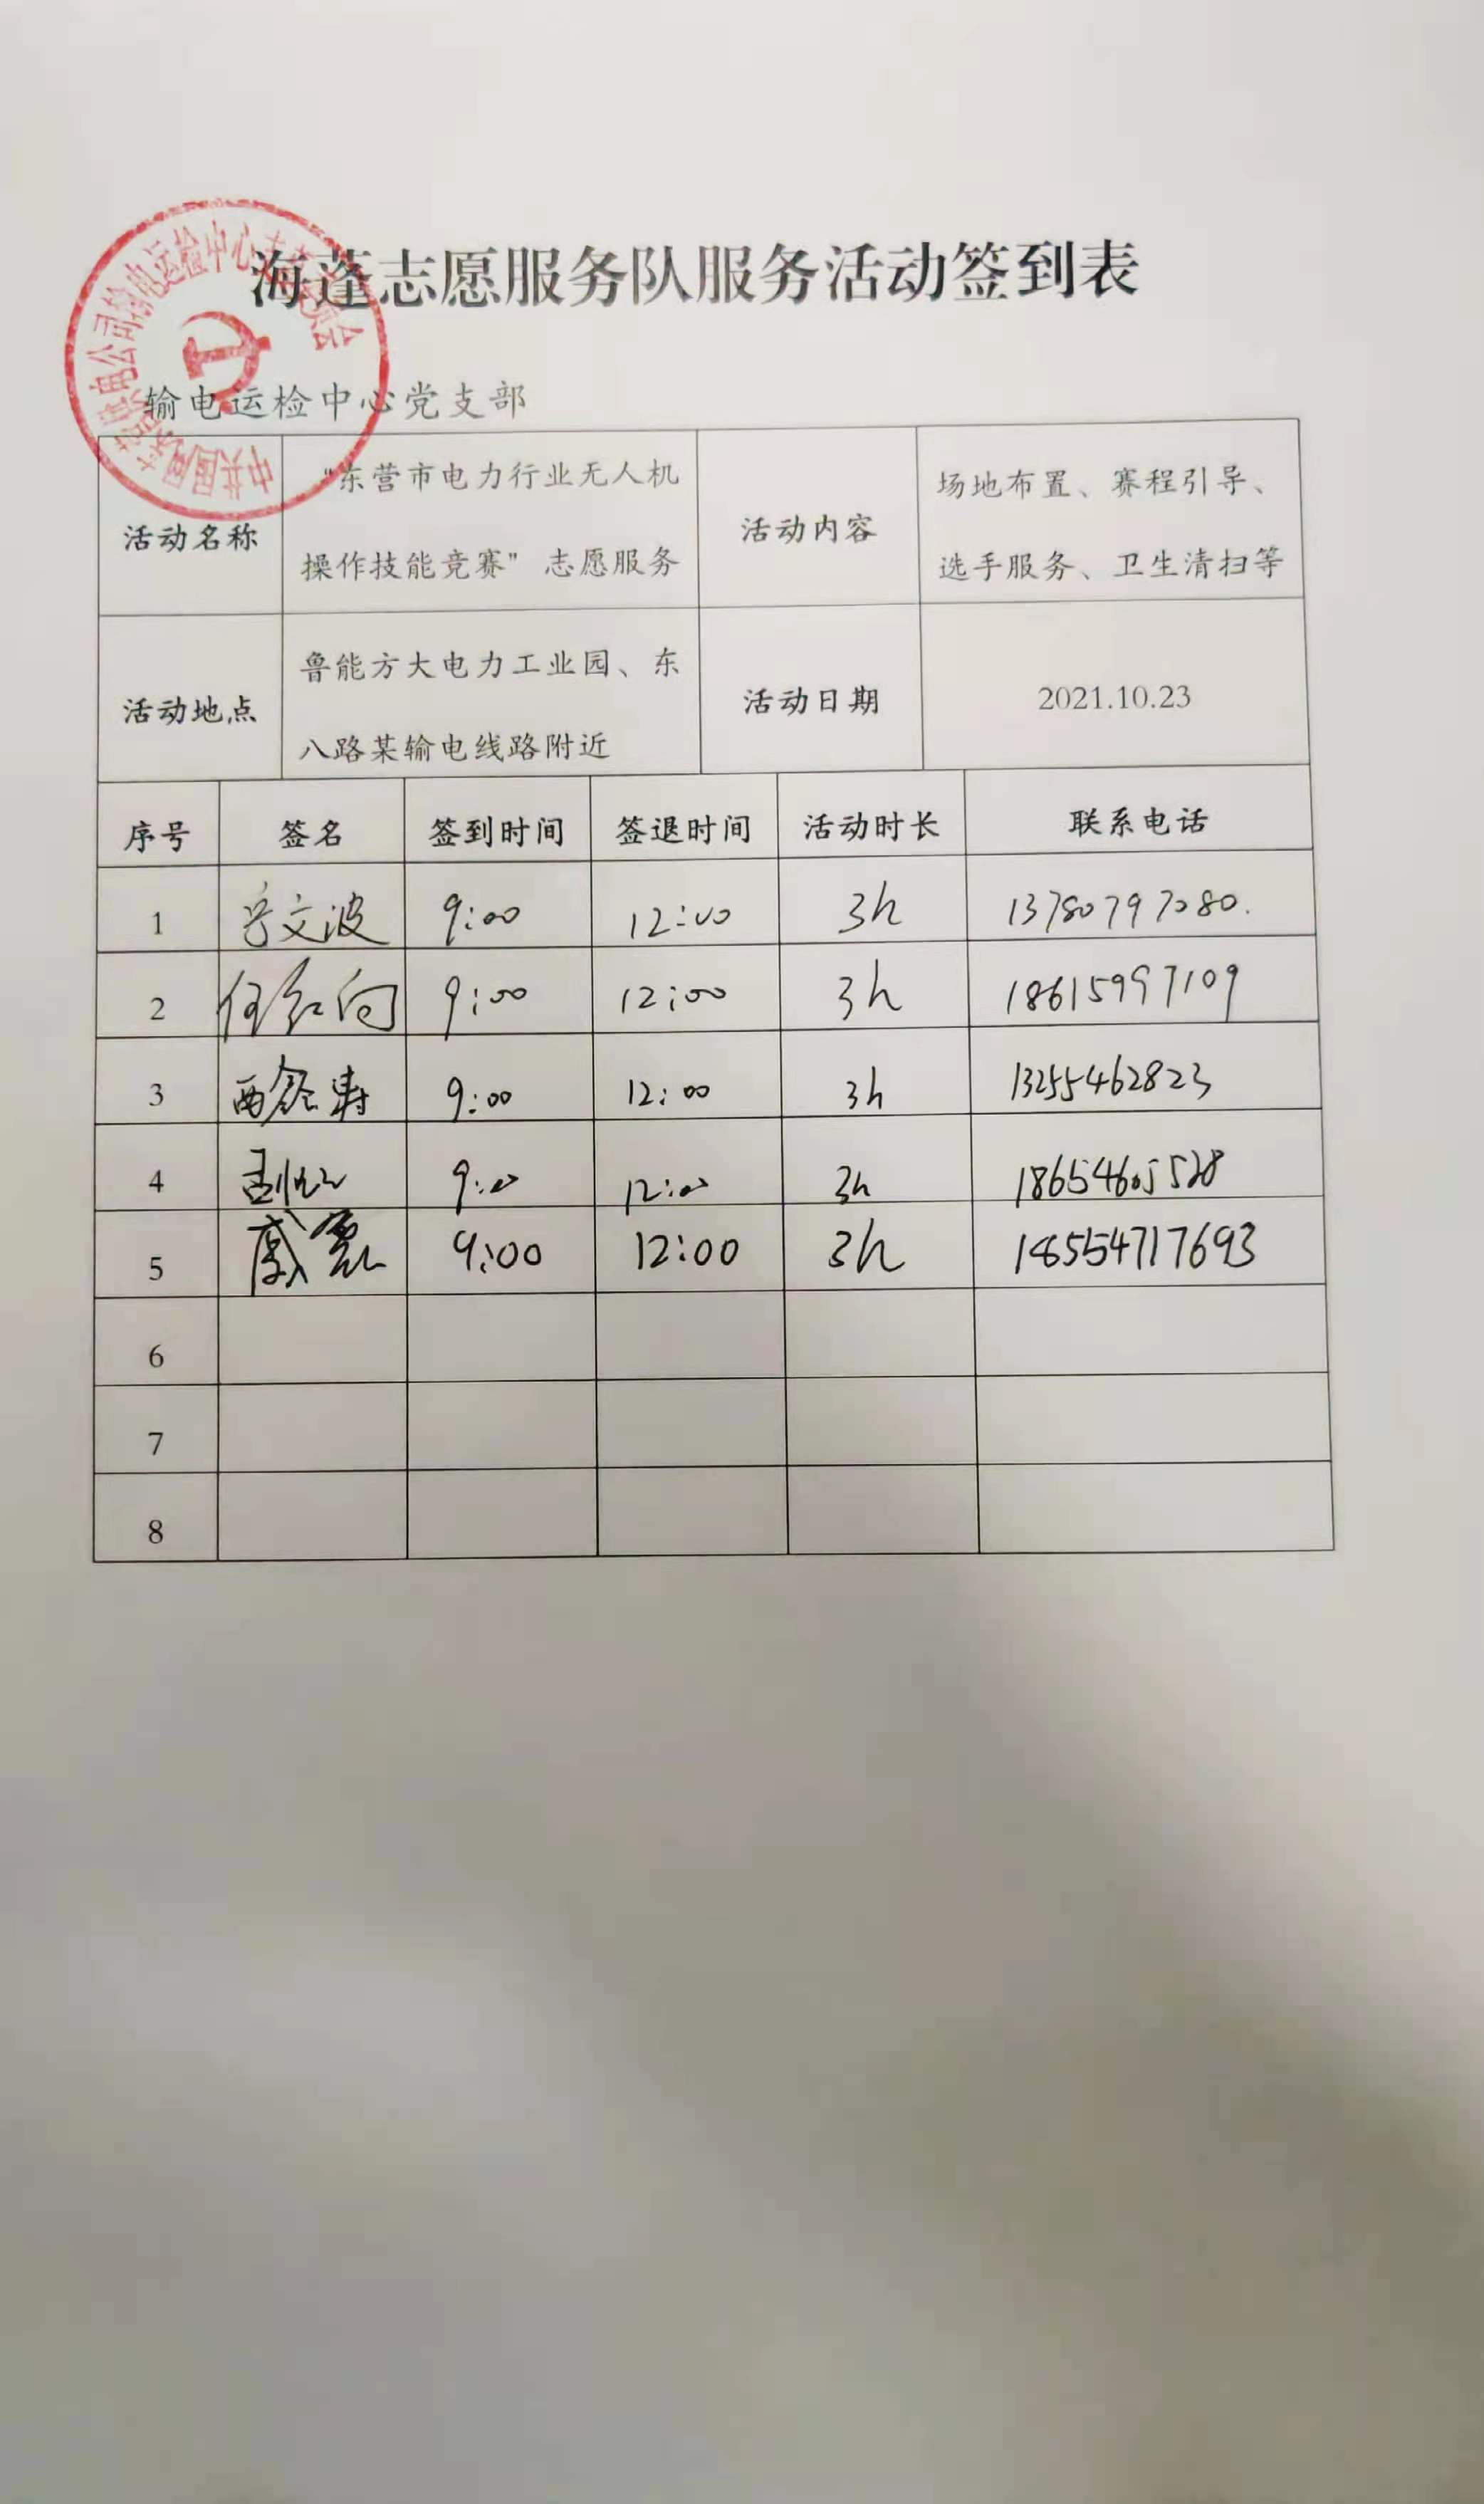 海蓬志愿服务队服务活动签到表
输电运检中心党支部
活动名称
“东营市电力行业无人机
操作技能竞赛” 志愿服务
活动内容
场地布置、赛程引导、
选手服务、卫生清扫等
活动地点
鲁能方大电力工业园、东
八路某输电线路附近
活动日期
2021.10.23
序号 签名 签到时间 签退时间 活动时长 联系电话
1 文波 9:00 12:00 3h 13780797080.
2 任红向 9:00 12:00 3h 18615997109
3 9:00 12:00 3h 13255462823
4 9:00 12:00 3h 18654605528
5 9:00 12:00 3h 18554717693
6
7
8